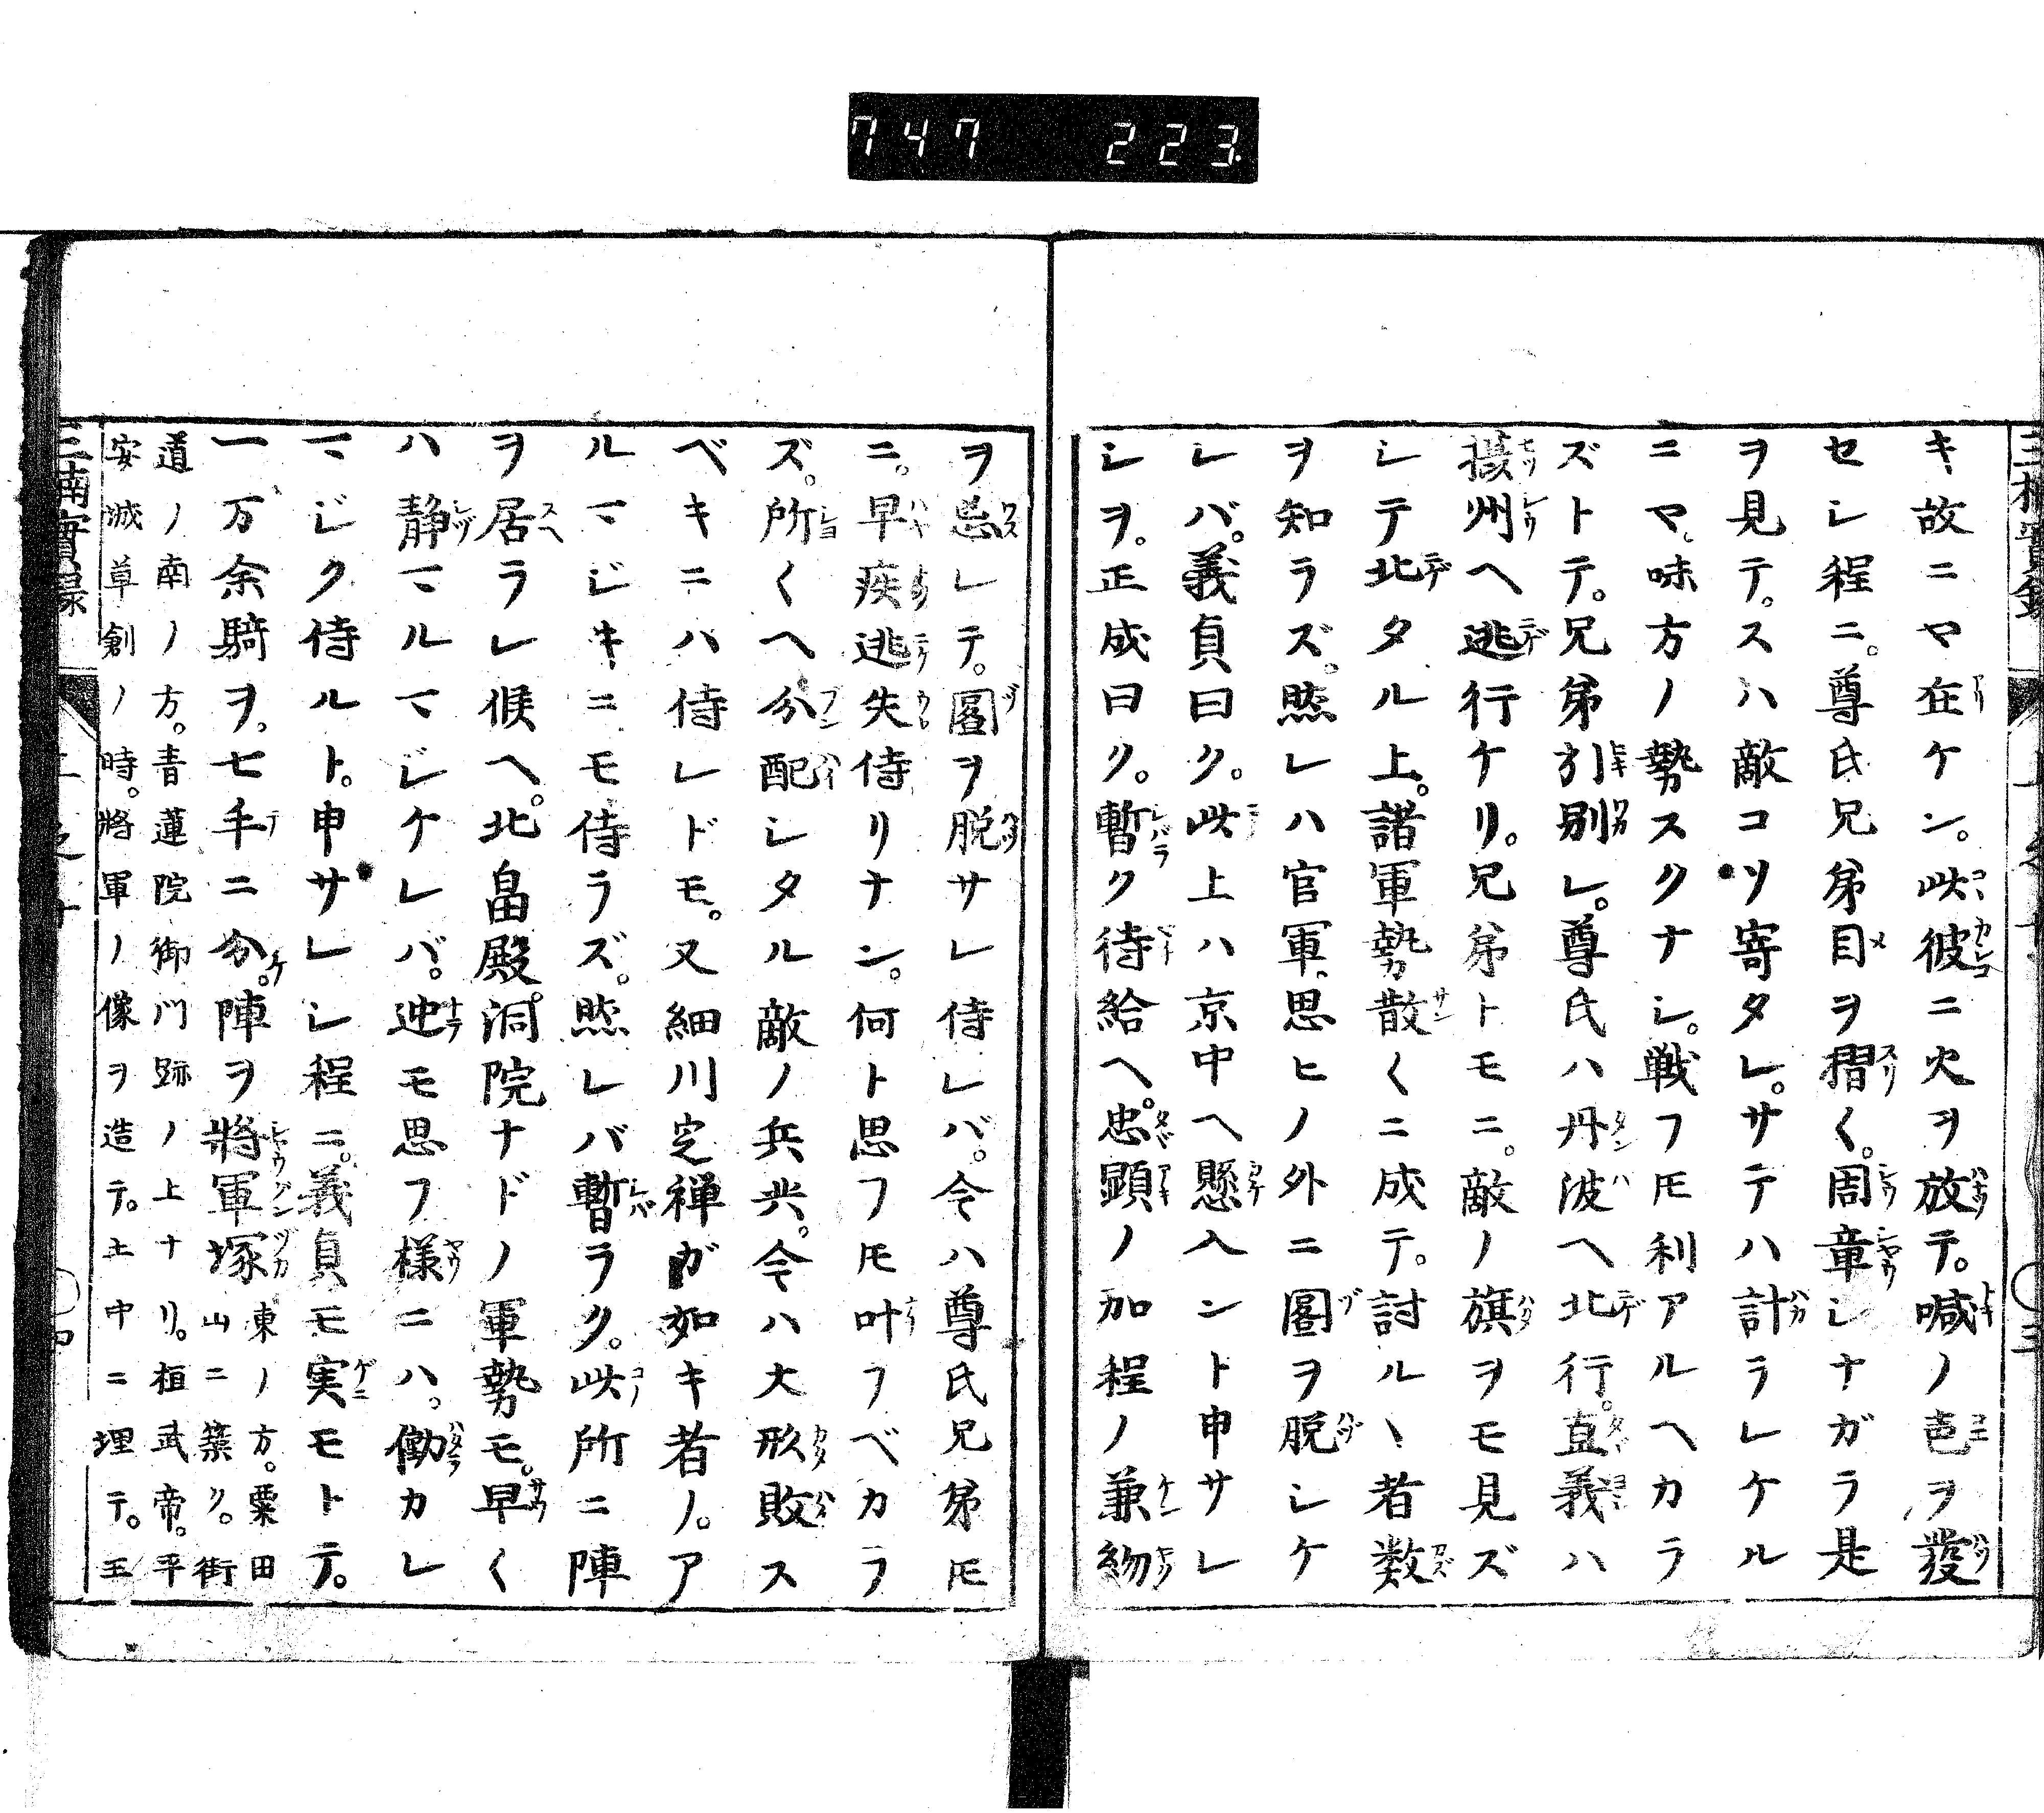 747 223.
キ故ニヤ在ケン。此彼ニ火ヲ放テ。喊ノ声ヲ発
セレ程ニ。尊氏兄弟目ヲ摺〱。周章シナガラ是
ヲ見テ。スハ敵コソ寄タレ。サテハ計ラレケル
ニマ、味方ノ勢スクナシ。戦フ𪜈利アルヘカラ
ズトテ。兄弟引別レ。尊氏ハ丹波ヘ北行。直義ハ
摂州ヘ逃行ケリ。兄弟トモニ。敵ノ旗ヲモ見ズ
シテ北タル上。諸軍勢散〱ニ成テ。討ルヽ者数
ヲ知ラズ。然レハ官軍、思ヒノ外ニ圖ヲ脱シケ
レバ。義貞曰ク。此上ハ京中ヘ懸入ント申サレ
シヲ。正成曰ク。暫ク待給ヘ。忠顕ノ加程ノ兼約
ヲ忘レテ。圖ヲ脱サレ侍レバ。今ハ尊氏兄弟𪜈
ニ。早疾逃失侍リナン。何ト思フ𪜈叶フベカラ
ズ。所〱ヘ分配シタル敵ノ兵共。今ハ大形敗ス
ベキニハ侍レドモ。又細川定禅ガ如キ者ノ。ア
ルマジキニモ侍ラズ。然レバ暫ラク。此所ニ陣
ヲ居ラレ候ヘ。北畠殿。洞院ナドノ軍勢モ。早〱
ハ静マルマジケレバ。迚モ思フ様ニハ。働カレ
マジク侍ルト。申サレシ程ニ。義貞モ実モトテ。
一万余騎ヲ、七手ニ分。陣ヲ将軍塚
東ノ方。粟田
山ニ築ク。街
道ノ南ノ方。青蓮院御門跡ノ上ナリ。桓武帝。平
安城草創ノ時。将軍ノ像ヲ造テ。土中ニ埋テ。王